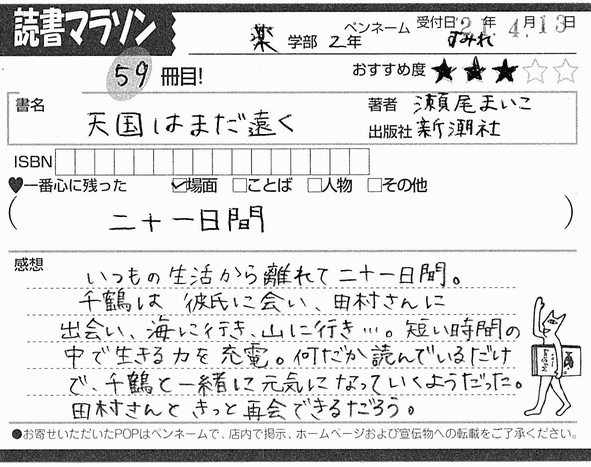 読書マラソン
薬 学部 2年 ペンネーム すみれ 受付日'21年4月13日
59冊目! おすすめ度★★★☆☆
書名 天国はまだ遠く
著者 瀬尾まいこ
出版社 新潮社
ISBN
♥一番心に残った ☑場面 □ことば □人物 □その他
(二十一日間)
感想
いつもの生活から離れて二十一日間。
千鶴は 彼氏に会い、田村さんに
出会い、海に行き、山に行き…。短い時間の
中で生きる力を充電。何だか読んでいるだけ
で、千鶴と一緒に元気になっていくようだった。
田村さんときっと再会できるだろう。
●お寄せいただいたPOPはペンネームで、店内で掲示、ホームページおよび宣伝物への転載をご了承ください。